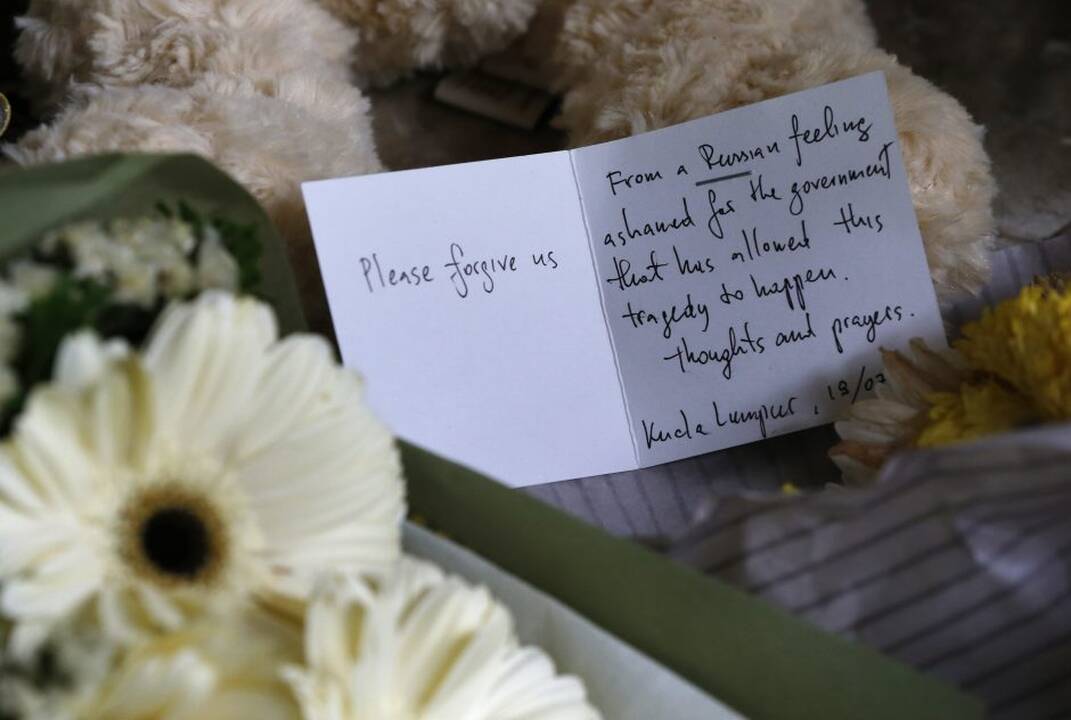 Please forgive us
From a Russian feeling
ashamed for the government
that has allowed this
tragedy to happen.
thoughts and prayers.
Kuala Lumpur, 19/07